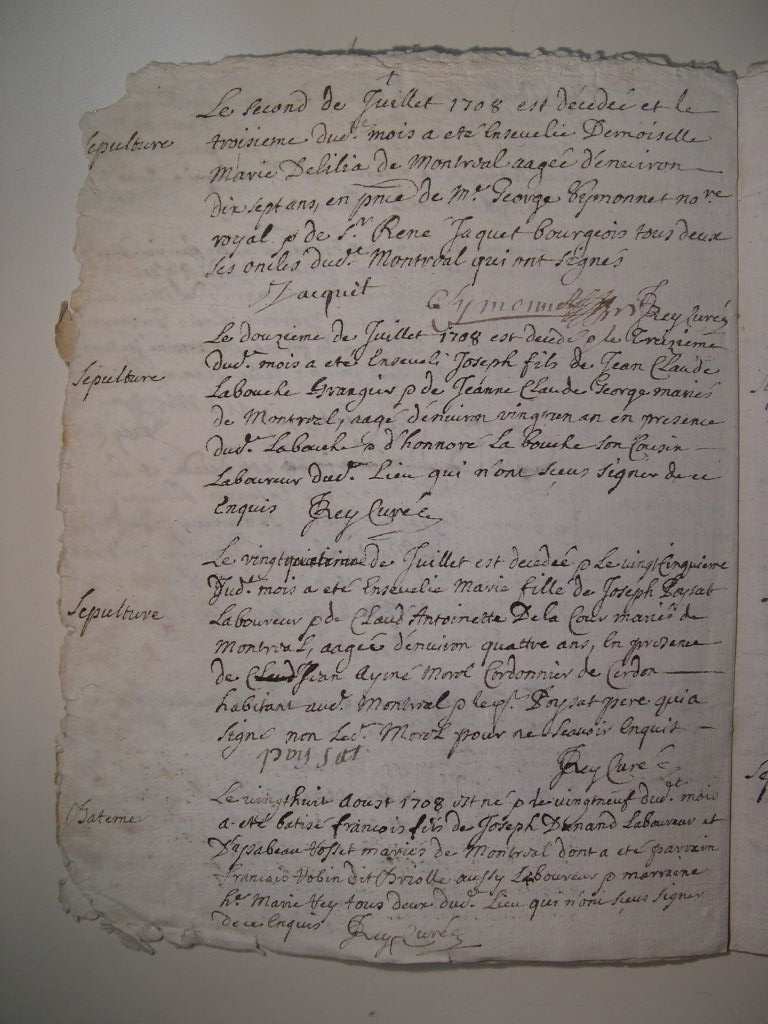 Le second de Juillet 1708 est décedeé et le
Sepulture
troisieme dud.t mois a eté Ensevelie Demoiselle
Marie Delilia de Montreal aagée d'environ
dix sept ans, en pnce de M.e George Eymonnet no.re
royal p de s.r René Jaquet bourgeois tous deux
ses oncles dud.t Montreal qui ont signés
Jacquet Eymonnet Rey Curé
Le douzieme de Juillet 1708 est decedé p le Treizieme
Sepulture
dud.t mois a eté Enseveli Joseph fils de Jean Claude
Labouche Grangier p de Jeanne Claude George mariés
de Montreal, aagé d'environ vingt un an en presence
dud.t Labouche p d'honnoré La bouche son Cousin
Laboureur dud.t Lieu qui n'ont sieus signer de ce
Enquis Rey Curé
Le vingt de Juillet est decedeé p Le vingt Cinquieme
Sepulture
dud.t mois a eté Ensevelie Marie fille de Joseph Poysat
Laboureur p de Claud' Antoinette De la Cour mariés de
Montreal, aagée d'environ quattre ans, En presence
de Jean Aymé Morel Cordonnier de Cerdon
habitant aud.t Montreal p le s.r Poysat pere qui a
signé non Led.t Morel pour ne sçavoir Enquit
poysat
Rey Curé
Le vingthuit Aoust 1708 est né p le vingtneuf dud.t mois
Bateme
a eté batisé françois fils de Joseph Dunand Laboureur et
D'ysabeau Vosset mariés de Montreal dont a eté parrain
françois Vobin dit Briolle aussy Laboureur p marraine
h.e Marie Vey tous deux dud.t Lieu qui n'ont sieus signer
de ce Enquis Rey Curé